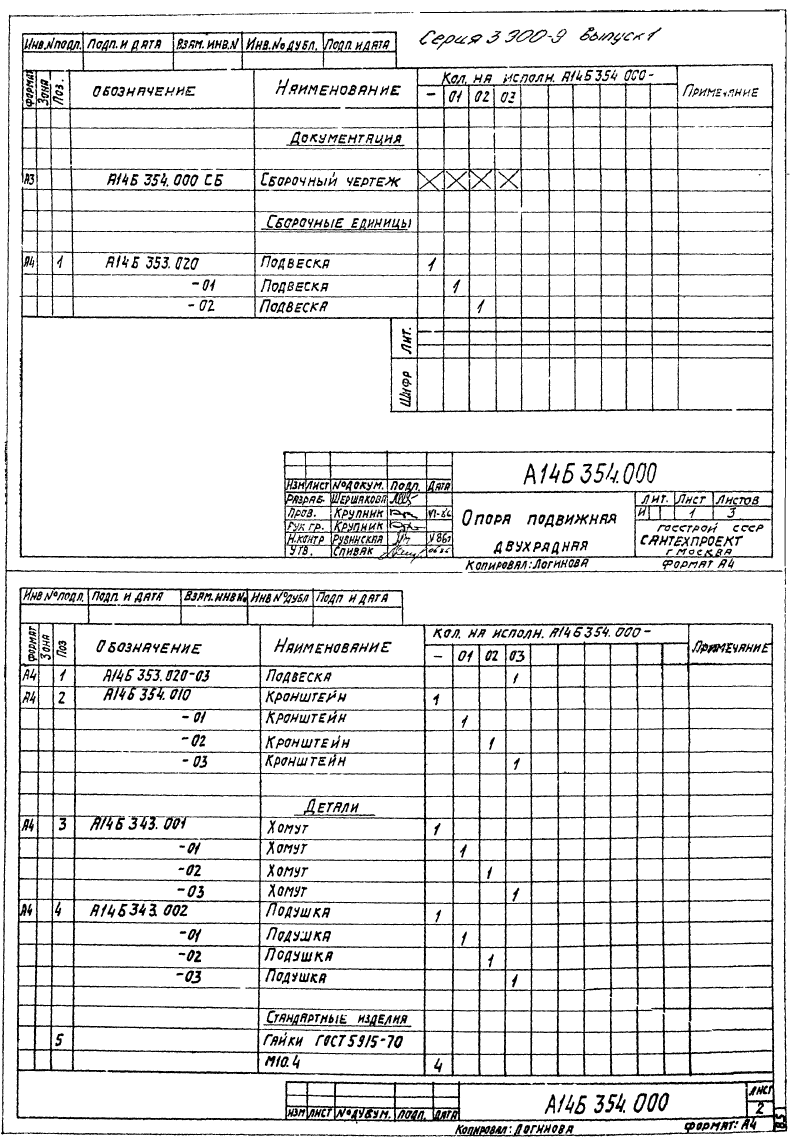 Серия 3 900-9 выпуск 1
Инв.№подл. Подп. и дата Взам. инв.№ Инв.№дубл. Подп. и дата
Формат Зона Поз. Обозначение Наименование Кол. на исполн. А14Б354 000- Примечание
- 01 02 03
Документация
А3 А14Б 354.000 СБ Сборочный чертеж X X X X
Сборочные единицы
А4 1 А14Б 353.020 Подвеска 1
-01 Подвеска 1
-02 Подвеска 1
Лит.
Шифр
А14Б 354.000
Изм Лист №докум. Подп. Дата
Разраб. Шершакова
Пров. Крупник VI-86
Рук гр. Крупник
Н.контр Рубинская
Утв. Спивак
Опора подвижная
двухрадная
Лит. Лист Листов
И 1 3
Госстрой СССР
Сантехпроект
г Москва
Копировал: Логинова Формат А4
Инв №подл. Подп. и дата Взам. инв № Инв №дубл Подп и дата
Формат Зона Поз Обозначение Наименование Кол. на исполн. А14Б354.000- Примечание
- 01 02 03
А4 1 А14Б 353.020-03 Подвеска 1
А4 2 А14Б 354.010 Кронштейн 1
-01 Кронштейн 1
-02 Кронштейн 1
-03 Кронштейн 1
Детали
А4 3 А14Б 343.001 Хомут 1
-01 Хомут 1
-02 Хомут 1
-03 Хомут 1
А4 4 А14Б 343.002 Подушка 1
-01 Подушка 1
-02 Подушка 1
-03 Подушка 1
Стандартные изделия
5 Гайки ГОСТ 5915-70
М10.4 4
Изм Лист №докум. Подп. Дата
А14Б 354.000
Лист
2
Копировал: Логинова Формат: А4